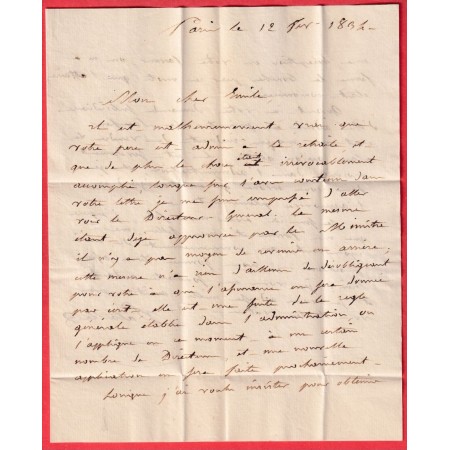 Paris le 12 fev. 1834
Mon cher Emile
Il est malheureusement vrai que
votre pere est admis a la retraite et
que de plus la chose était irrévocablement
accomplie lorsque j'ai reçu l'avis contenu dans
votre lettre je me suis empressé d'aller
voir le Directeur General. la mesure
étant deja approuvée par le Ministre
il n'y a pas moyen de revenir en arriere,
cette mesure n'a rien d'ailleurs de désobligeant
pour votre
par écrit elle est une suite de la regle
générale établie dans l'administration on
l'applique en ce moment à un certain
nombre de Directeurs et une nouvelle
application en sera faite prochainement
Lorsque j'ai voulu insister pour obtenir